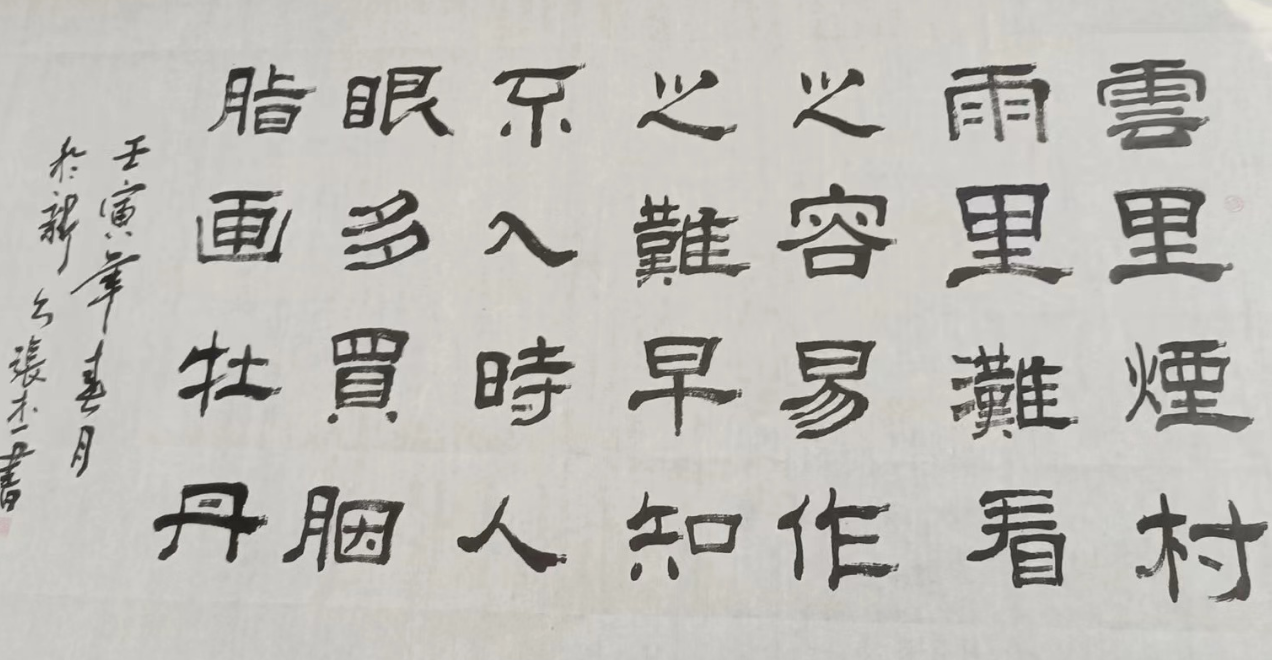 雲里煙村
雨里灘看
之容易作
之難早知
不入時人
眼多買胭
脂画牡丹
壬寅年春月
於新
張木一書